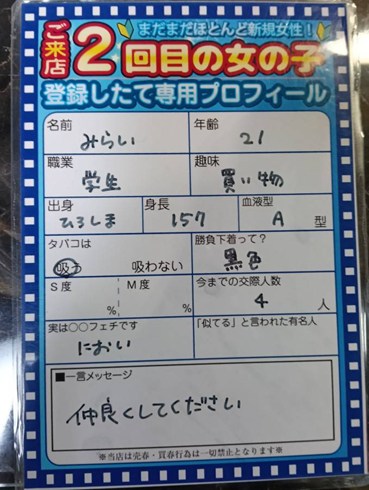 まだまだほとんど新規女性!
ご来店2回目の女の子
登録したて専用プロフィール
名前 みらい 年齢 21
職業 学生 趣味 買い物
出身 ひろしま 身長 157 血液型 A 型
タバコは 吸う 吸わない 勝負下着って? 黒色
S度 % M度 % 今までの交際人数 4 人
実は○○フェチです におい 「似てる」と言われた有名人
■一言メッセージ
仲良くしてください
※当店は売春・買春行為は一切禁止となります※